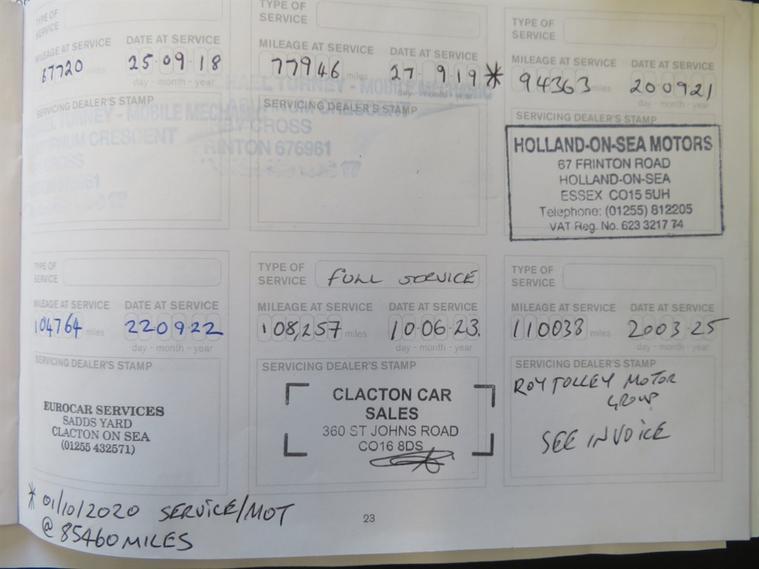 TYPE OF SERVICE
TYPE OF SERVICE
TYPE OF SERVICE
MILEAGE AT SERVICE DATE AT SERVICE
67720 miles 25 09 18
day - month - year
MILEAGE AT SERVICE DATE AT SERVICE
77946 miles 27 9 19 *
day - month - year
MILEAGE AT SERVICE DATE AT SERVICE
94363 miles 200921
day - month - year
SERVICING DEALER'S STAMP
SERVICING DEALER'S STAMP
SERVICING DEALER'S STAMP
TURNEY - MOBILE MECHANIC
CROSS
RINTON 676961
HOLLAND-ON-SEA MOTORS
67 FRINTON ROAD
HOLLAND-ON-SEA
ESSEX CO15 5UH
Telephone: (01255) 812205
VAT Reg. No. 623 3217 74
TYPE OF SERVICE
MILEAGE AT SERVICE DATE AT SERVICE
104764 miles 220922
day - month - year
SERVICING DEALER'S STAMP
EUROCAR SERVICES
SADDS YARD
CLACTON ON SEA
(01255 432571)
TYPE OF SERVICE FULL SERVICE
MILEAGE AT SERVICE DATE AT SERVICE
108,257 miles 10.06.23.
day - month - year
SERVICING DEALER'S STAMP
CLACTON CAR
SALES
360 ST JOHNS ROAD
CO16 8DS
TYPE OF SERVICE
MILEAGE AT SERVICE DATE AT SERVICE
110038 miles 2003-25
day - month - year
SERVICING DEALER'S STAMP
ROY TOLLEY MOTOR
GROUP
SEE INVOICE
* 01/10/2020 SERVICE/MOT
@ 85460 MILES
23